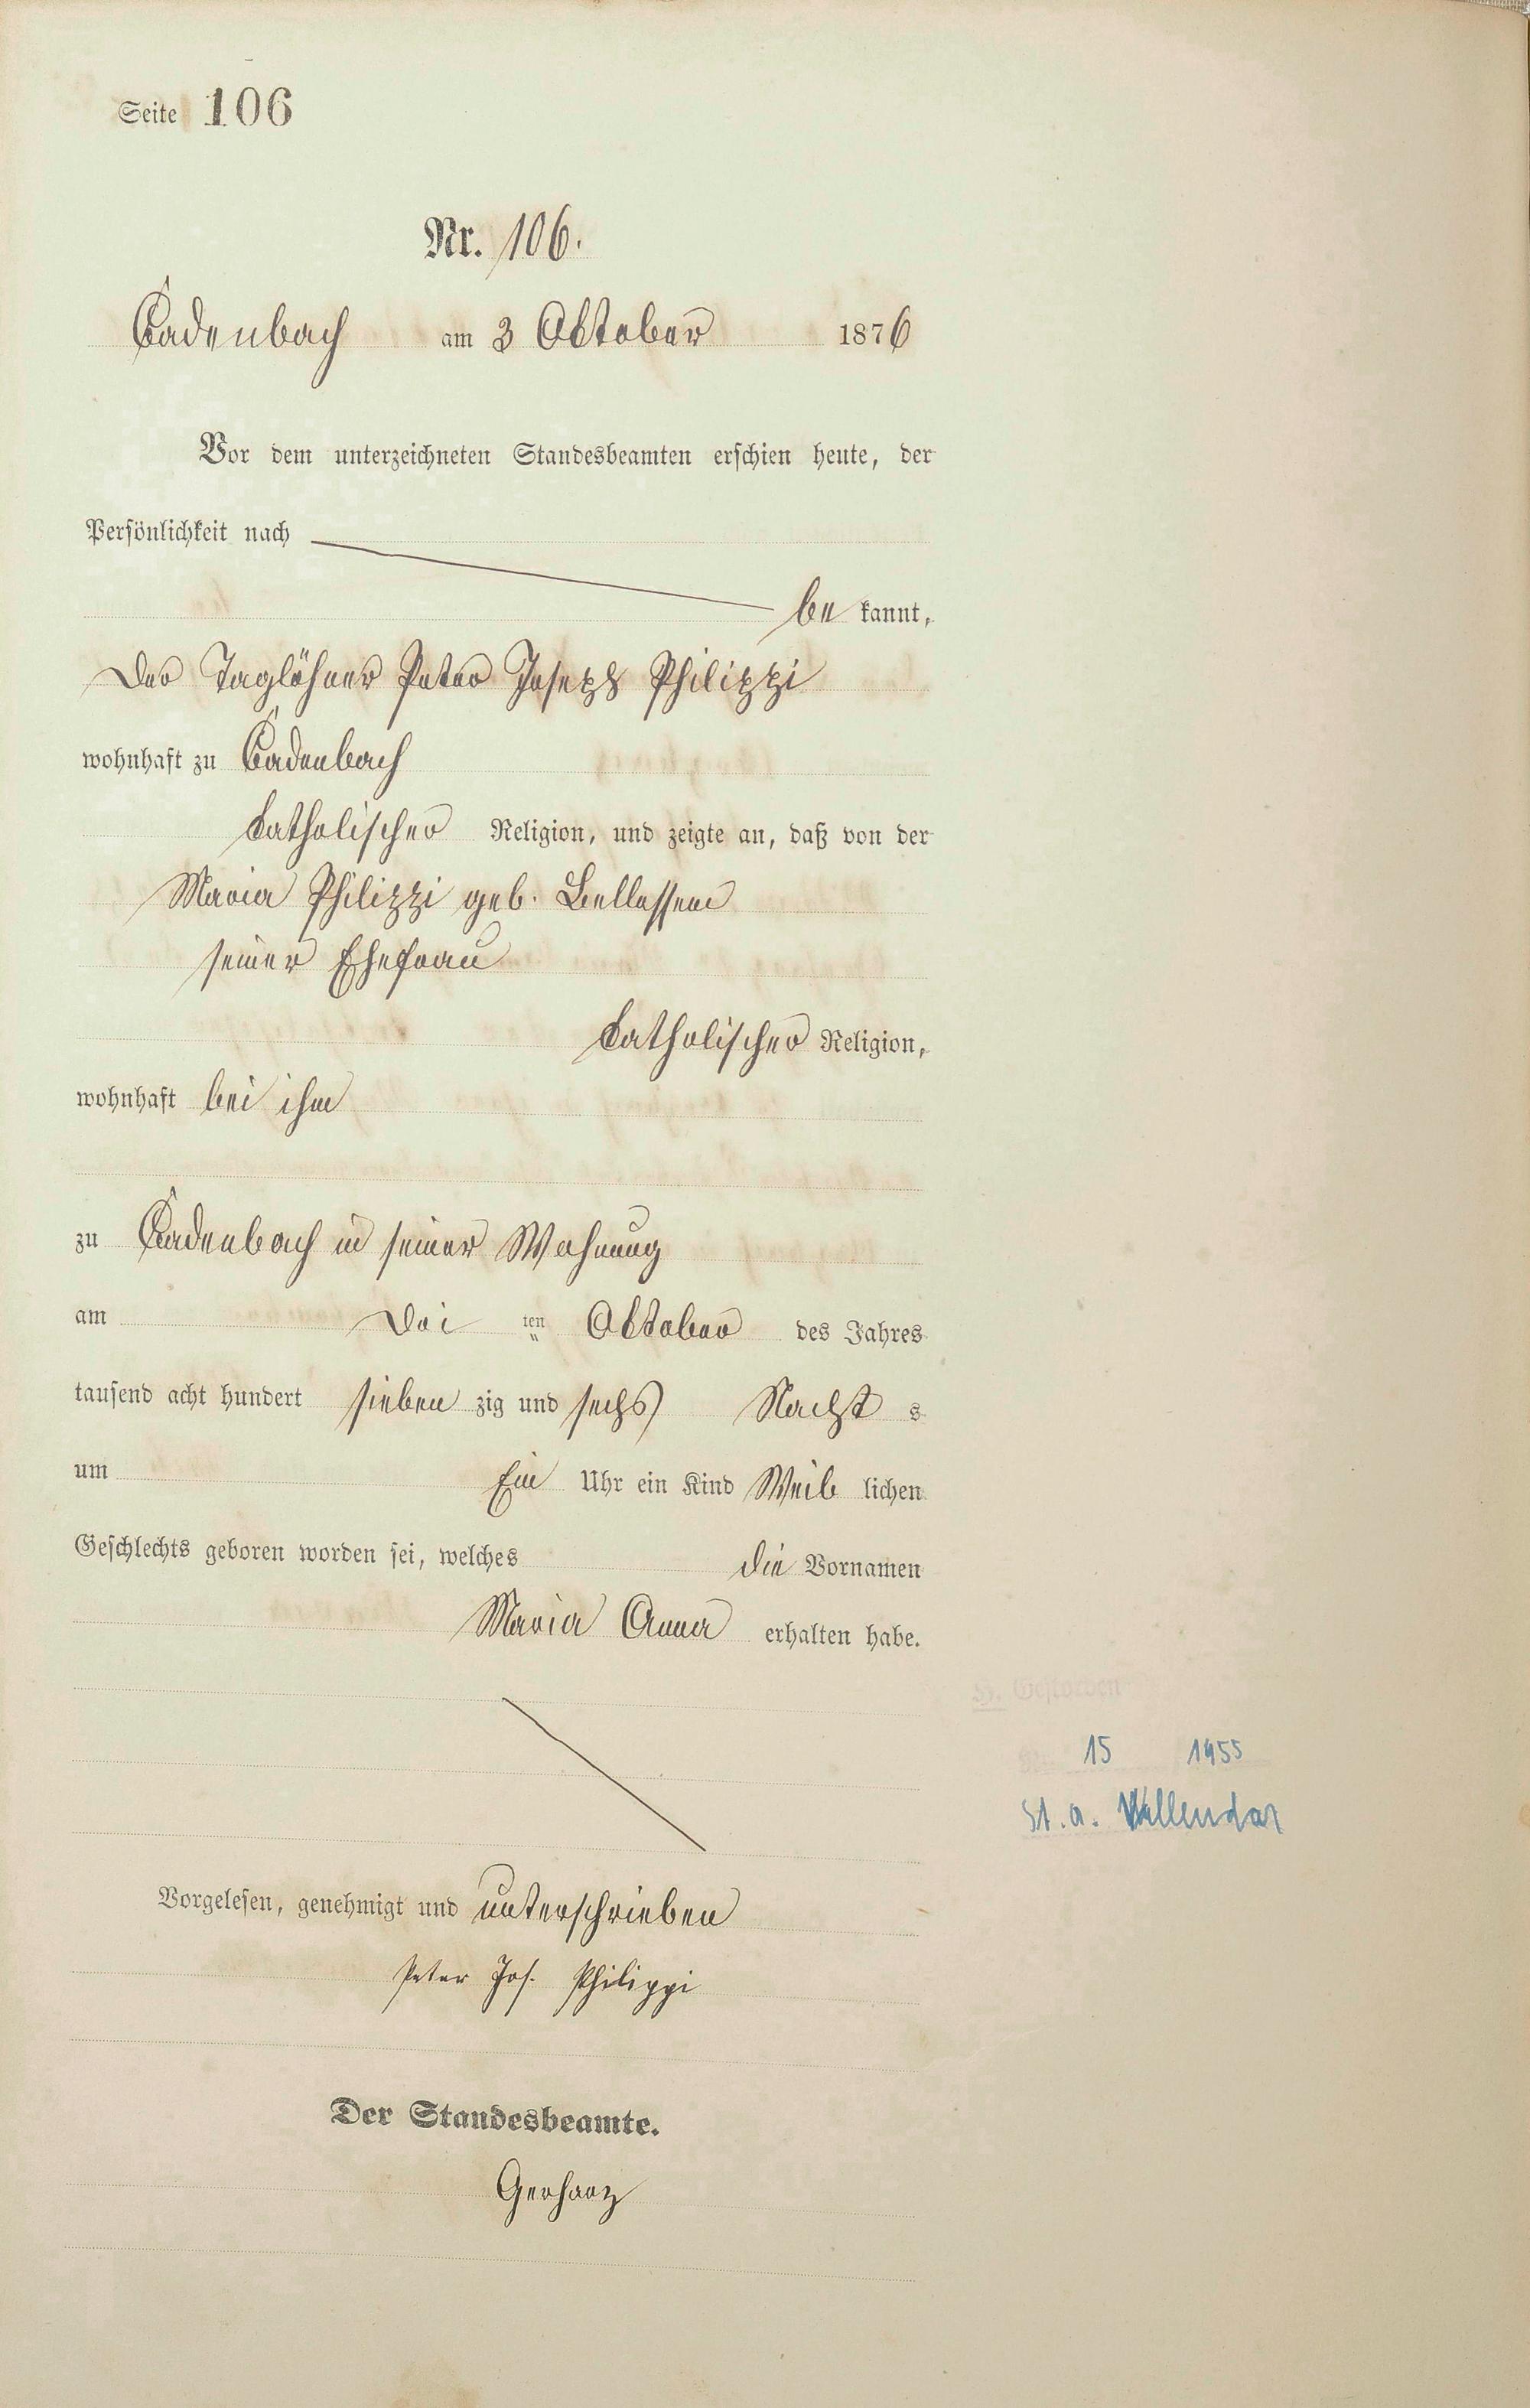 Seite 106
Nr. 106.
Cadenbach am 3 Oktober 1876
Vor dem unterzeichneten Standesbeamten erschien heute, der
Persönlichkeit nach
be kannt,
Der Taglöhner Peter Joseph Philippi
wohnhaft zu Cadenbach
katholischer Religion, und zeigte an, daß von der
Maria Philippi geb. Bellassem
seiner Ehefrau
katholischer Religion,
wohnhaft bei ihm
zu Cadenbach in seiner Wohnung
am Drei ten Oktober des Jahres
tausend acht hundert sieben zig und sechs Nacht s
um Ein Uhr ein Kind Weib lichen
Geschlechts geboren worden sei, welches die Vornamen
Maria Anna erhalten habe.
H. Gestorben
15 1955
St. a. Vallendar
Vorgelesen, genehmigt und unterschrieben
Peter Jos. Philippi
Der Standesbeamte.
Gerharz